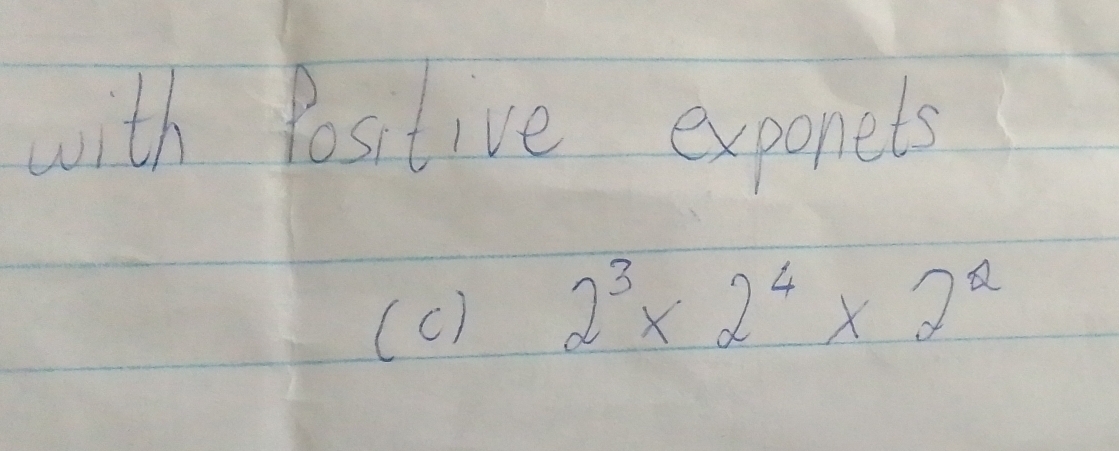 with Positive exponets
(c) 2³ x 2⁴ x 2²